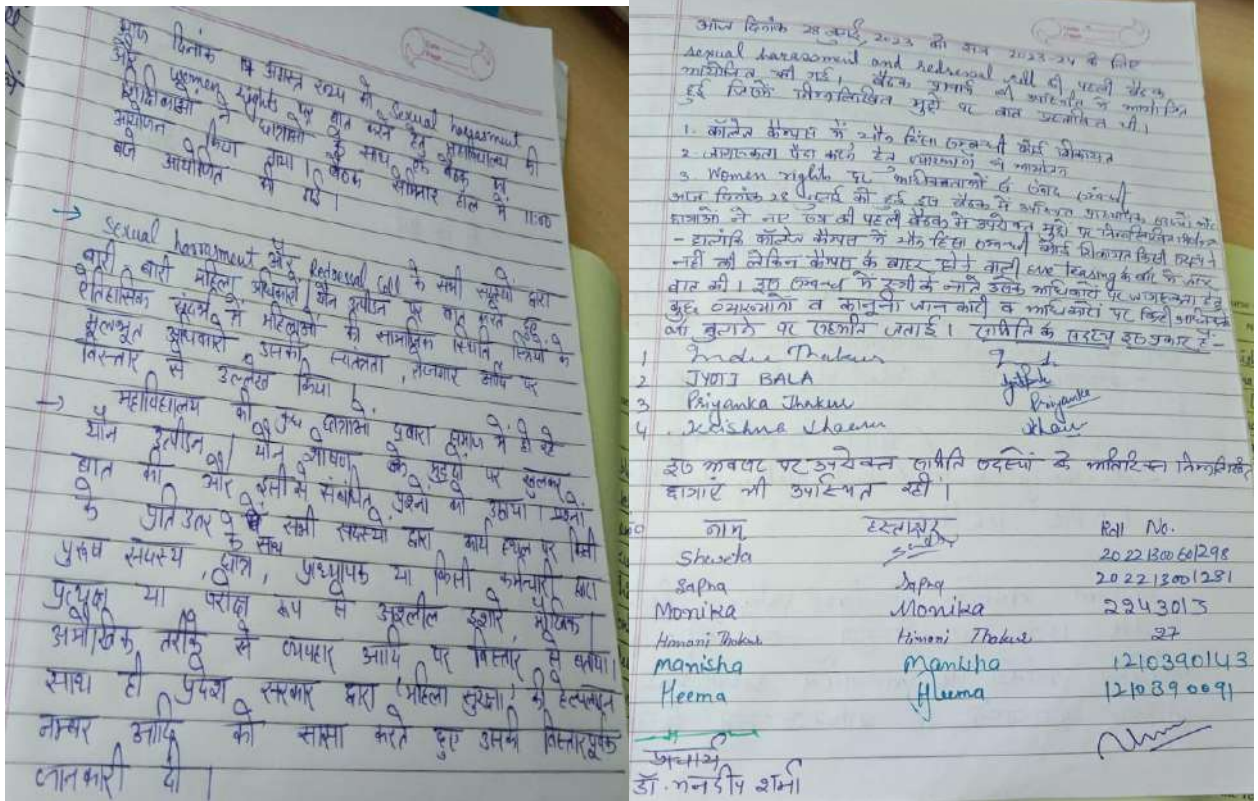 आज दिनांक अगस्त को Sexual harassment
और women rights पर बात करने हेतु महाविद्यालय की
शिक्षिकाओं ने छात्राओं के साथ एक बैठक का
आयोजन किया गया। बैठक सेमिनार हॉल में 11:00
बजे आयोजित की गई।
→ Sexual harassment और Redressal Cell के सभी सदस्यों द्वारा
बारी बारी महिला अधिकारों, यौन उत्पीड़न पर बात करते हुए,
ऐतिहासिक संदर्भ में महिलाओं की सामाजिक स्थिति, स्त्रियों के
मूलभूत अधिकारों, उसकी स्वतंत्रता, रोजगार आदि पर
विस्तार से उल्लेख किया।
→ महाविद्यालय की कुछ छात्राओं द्वारा समाज में हो रहे
यौन उत्पीड़न / यौन शोषण के मुद्दों पर खुलकर
बात की और इसी से संबंधित प्रश्नों को उठाया। प्रश्नों
के प्रतिउत्तर के साथ सभी सदस्यों द्वारा कार्य स्थल पर किसी
पुरुष सदस्य, छात्र, प्राध्यापक या किसी कर्मचारी द्वारा
प्रत्यक्ष या परोक्ष रूप से अश्लील इशारे, मौखिक /
अमौखिक तरीके से व्यवहार आदि पर विस्तार से बताया।
साथ ही प्रदेश सरकार द्वारा 'महिला सुरक्षा' की हेल्पलाइन
नम्बर आदि को सांझा करते हुए उसकी विस्तारपूर्वक
जानकारी दी।
आज दिनांक 28 जुलाई, 2023 को सत्र 2023-24 के लिए
sexual harassment and redressal cell की पहली बैठक
आयोजित की गई। बैठक प्रभारी की उपस्थिति में आयोजित
हुई जिसमें निम्नलिखित मुद्दों पर बात प्रस्तावित थी।
1. कॉलेज कैम्पस में यौन हिंसा सम्बन्धी कोई शिकायत
2. जागरूकता पैदा करने हेतु व्याख्यानों का आयोजन
3. Women rights पर अधिवक्ताओं से संवाद संबंधी
आज दिनांक 28 जुलाई को हुई इस बैठक में उपस्थित प्राध्यापक सदस्यों और
छात्राओं ने नए सत्र की पहली बैठक में उपरोक्त मुद्दों पर निम्नलिखित
- हालांकि कॉलेज कैम्पस में यौन हिंसा सम्बन्धी कोई शिकायत किसी सदस्य ने
नहीं की लेकिन कैम्पस के बाहर होने वाली eve teasing के बारे में जरूर
बात की। इस सम्बन्ध में स्त्री के नाते उसके अधिकारों पर जागरूकता हेतु
कुछ व्याख्यानों व कानूनी जानकारी व अधिकारों पर किसी अधिवक्ता
को बुलाने पर सहमति जताई। समिति के सदस्य इस प्रकार हैं-
1 Indu Thakur
2 JYOTI BALA Jyoti
3 Priyanka Thakur Priyanka
4 Krishna
इस अवसर पर उपरोक्त समिति सदस्यों के अतिरिक्त निम्नलिखित
छात्राएं भी उपस्थित रहीं।
नाम हस्ताक्षर Roll No.
Shweta 20221300601298
Sapna Sapna 202213001281
Monika Monika 2943013
Himani Thakur Himani Thakur 27
Manisha Manisha 1210390143
Heema Heema 1210390091
प्राचार्य
डॉ. मनदीप शर्मा